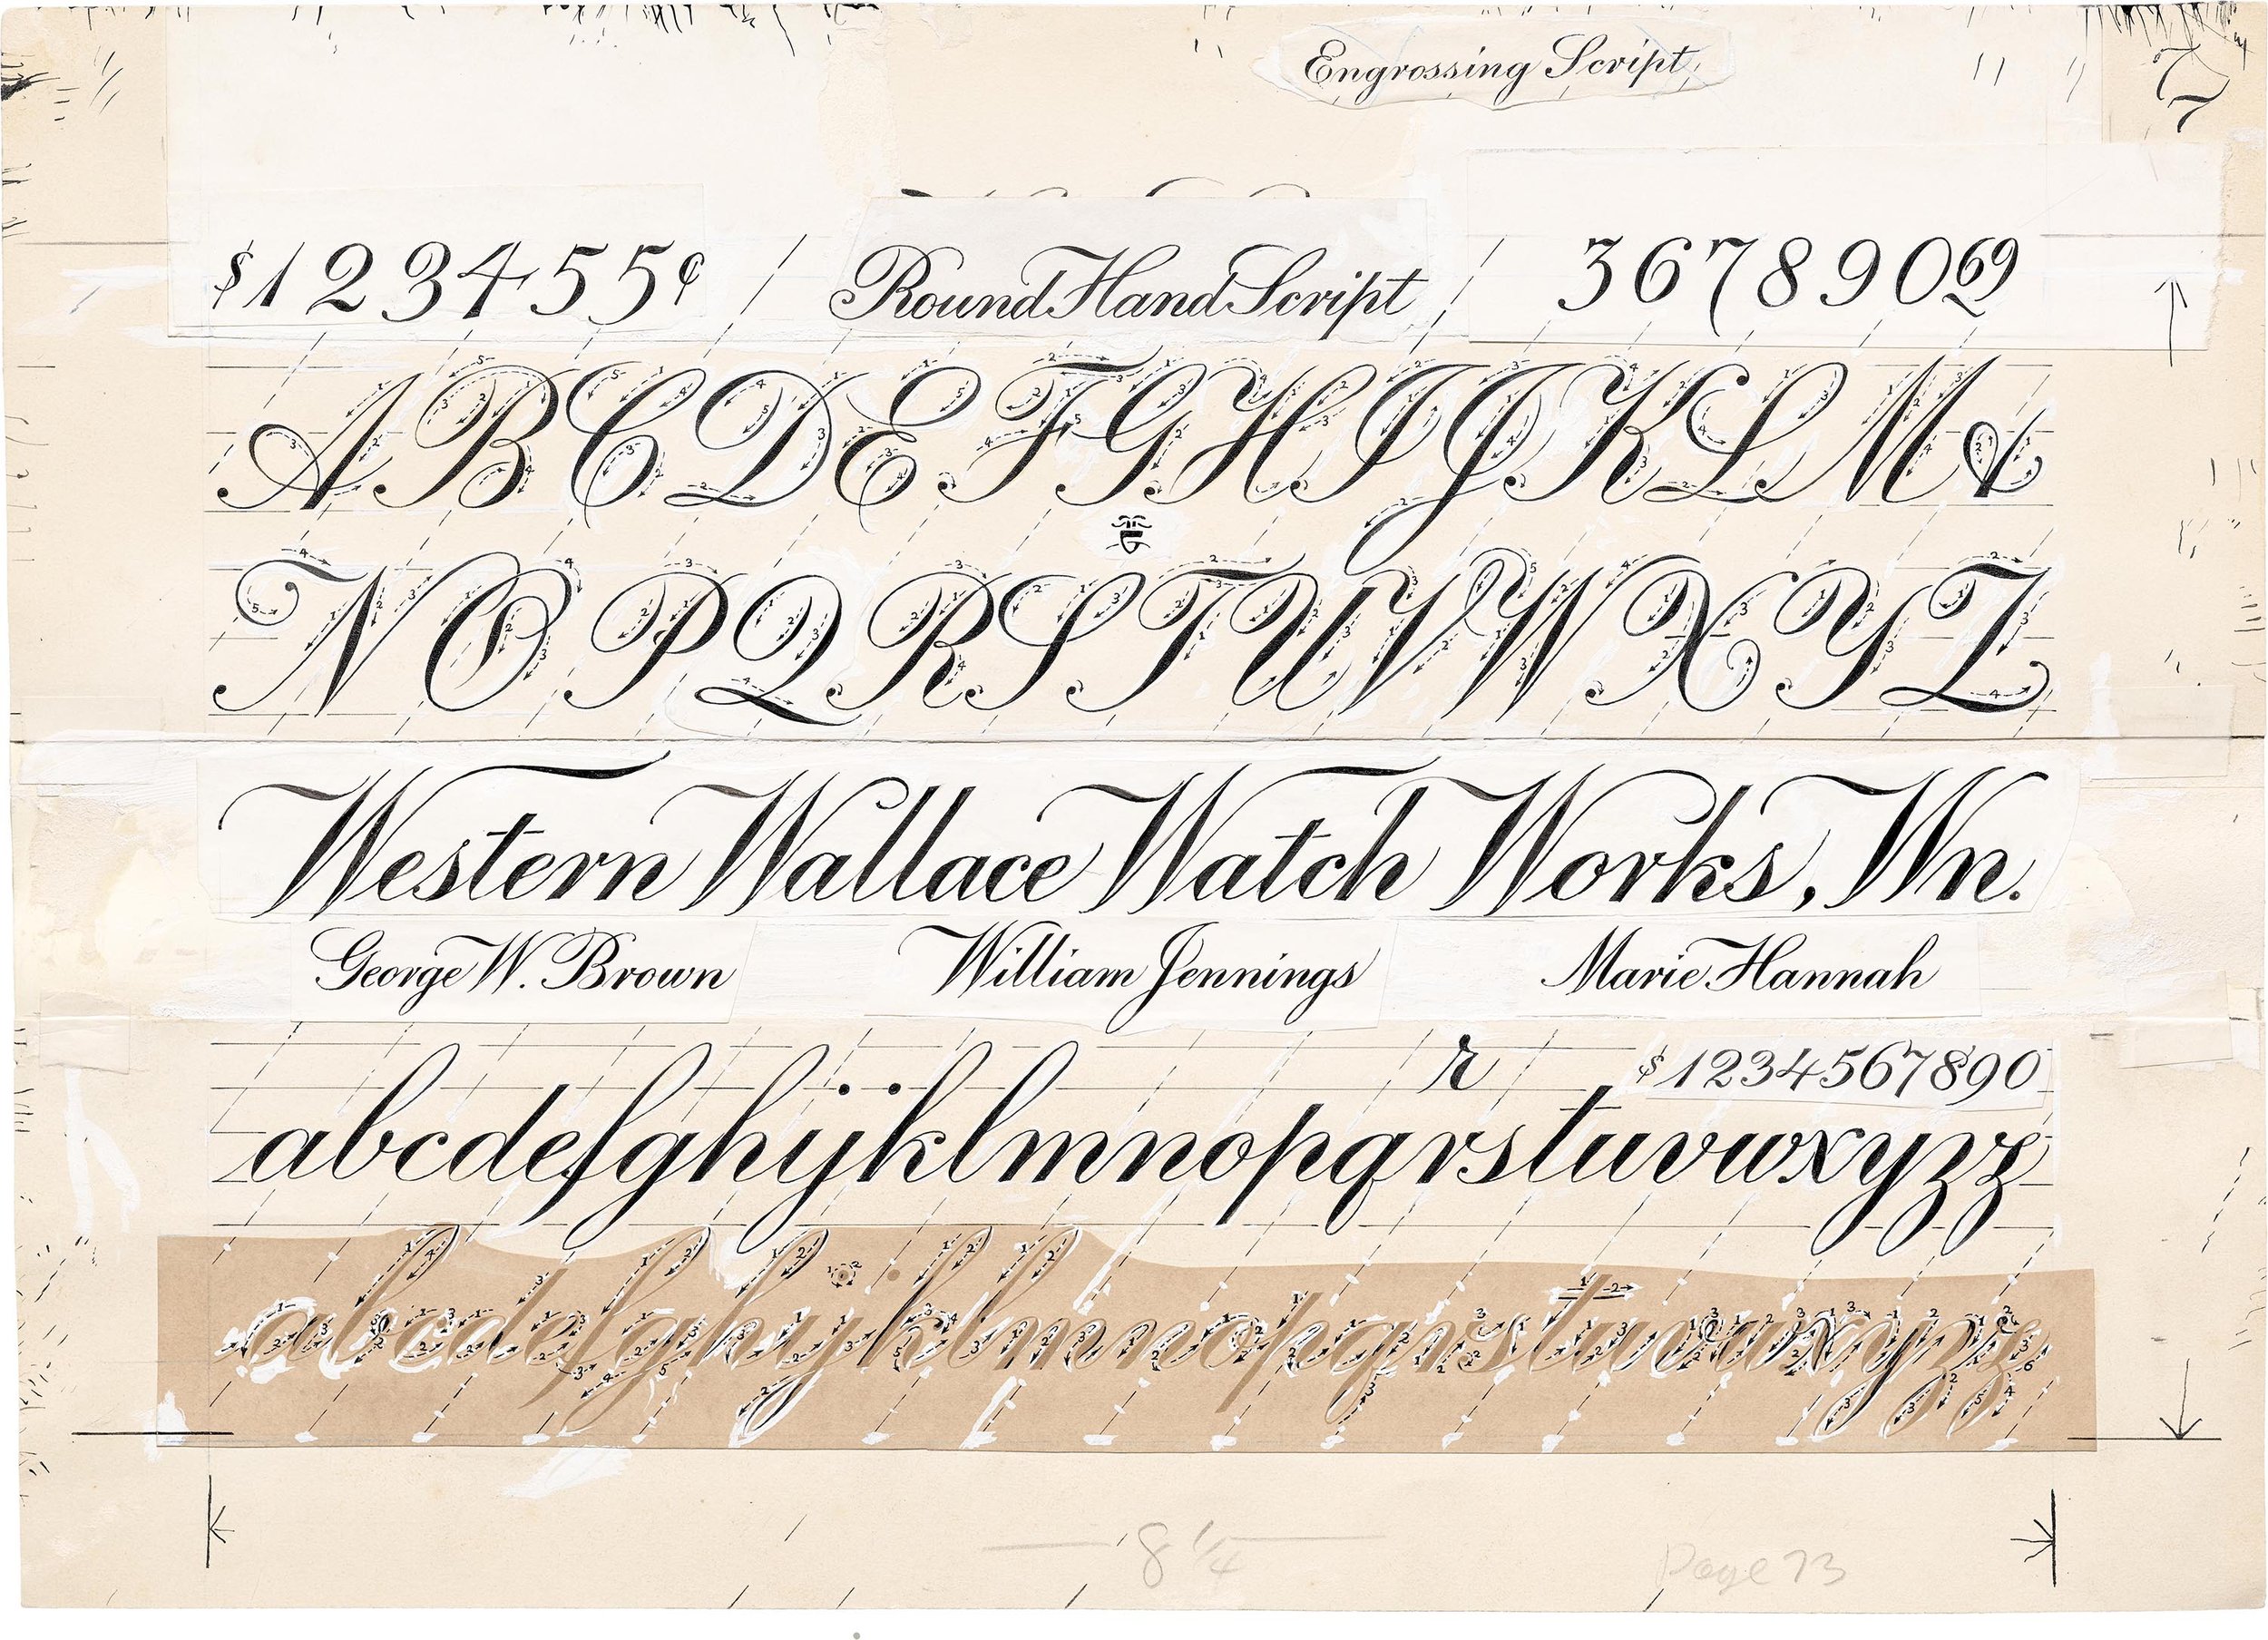 Engrossing Script
$123455¢ / Round Hand Script / 3678900
ABCDEFGHIJKLM&
NOPQRSTUVWXYZ
Western Wallace Watch Works, Wn.
George W. Brown William Jennings Marie Hannah
r $1234567890
abcdefghijklmnopqrstuvwxyzz
abcdefghijklmnopqrstuvwxyzz
8 1/4
Page 73